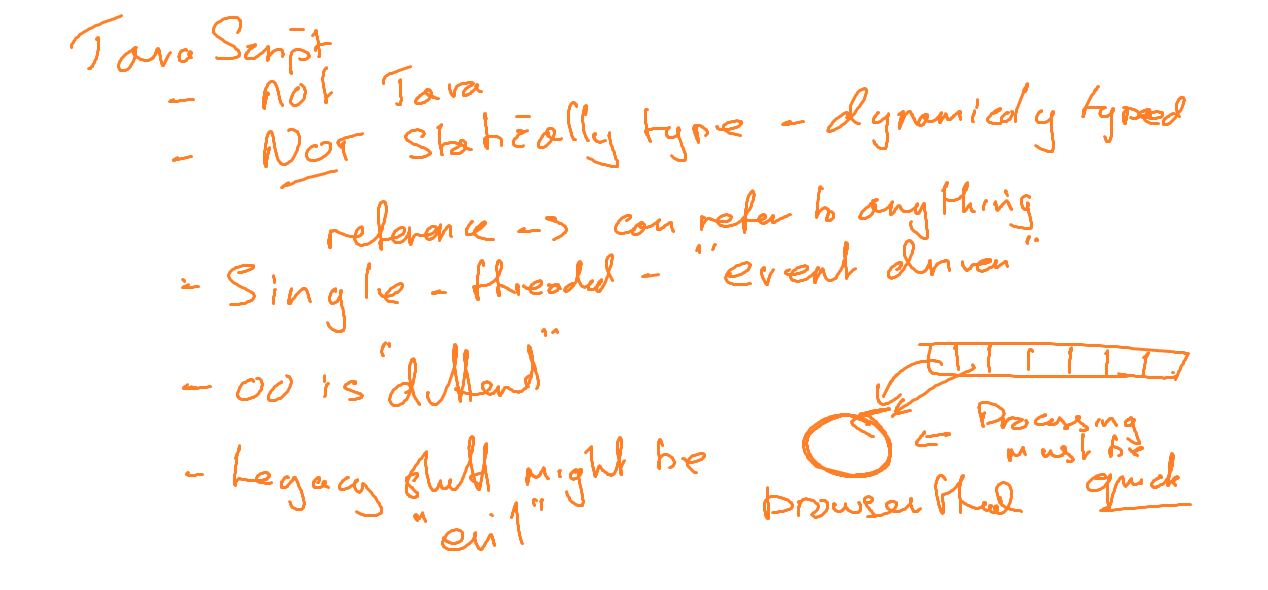 JavaScript
- not Java
- NOT statically type - dynamicly typed
reference -> can refer to anything
- Single-threaded - "event driven"
- OO is "different"
- Legacy stuff might be
"evil"
<- Processing
must be
quick
browser thread